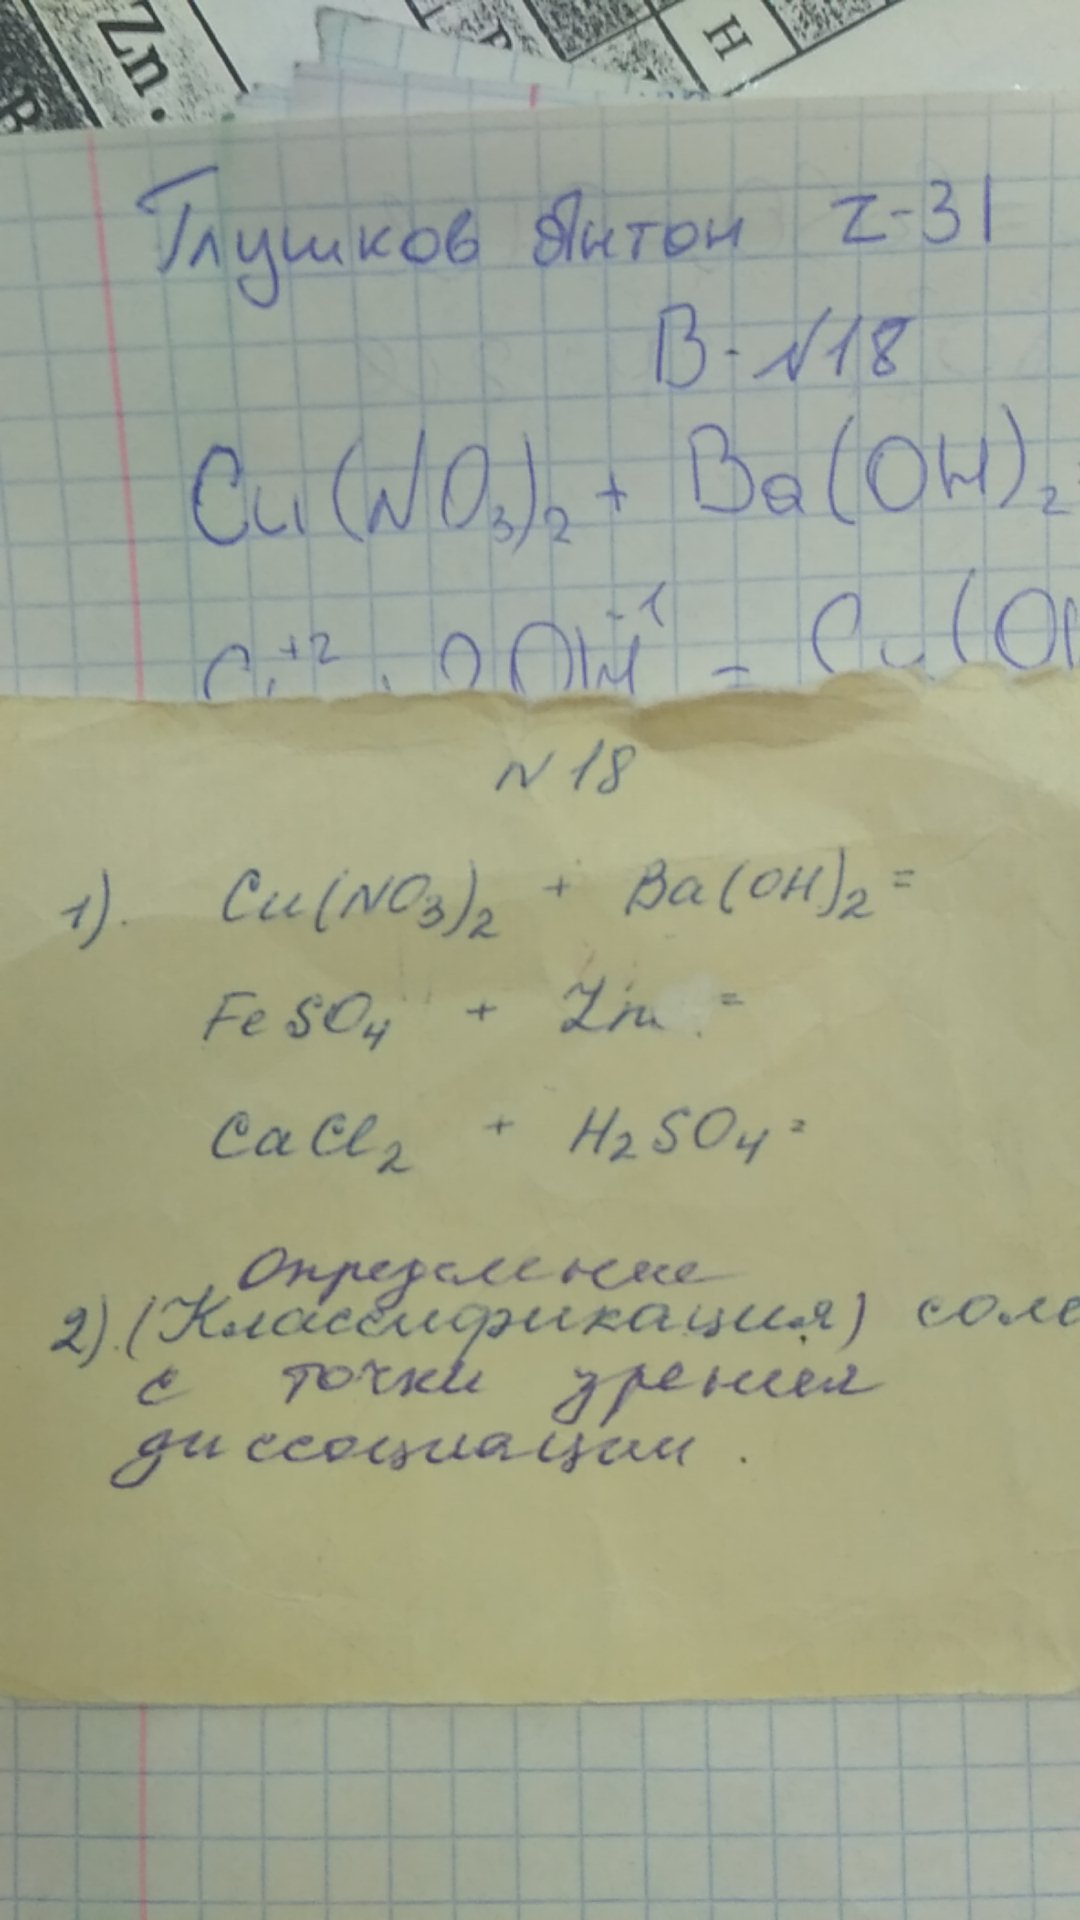 Zn.
H
Глушков Антон Z-31
В-№18
Cu(NO₃)₂ + Ba(OH)₂
+2 2OH⁻¹ = Cu(OH
№18
1). Cu(NO₃)₂ + Ba(OH)₂ =
FeSO₄ + Zn =
CaCl₂ + H₂SO₄ =
Определение
2).(Классификация) соле
с точки зрения
диссоциации.